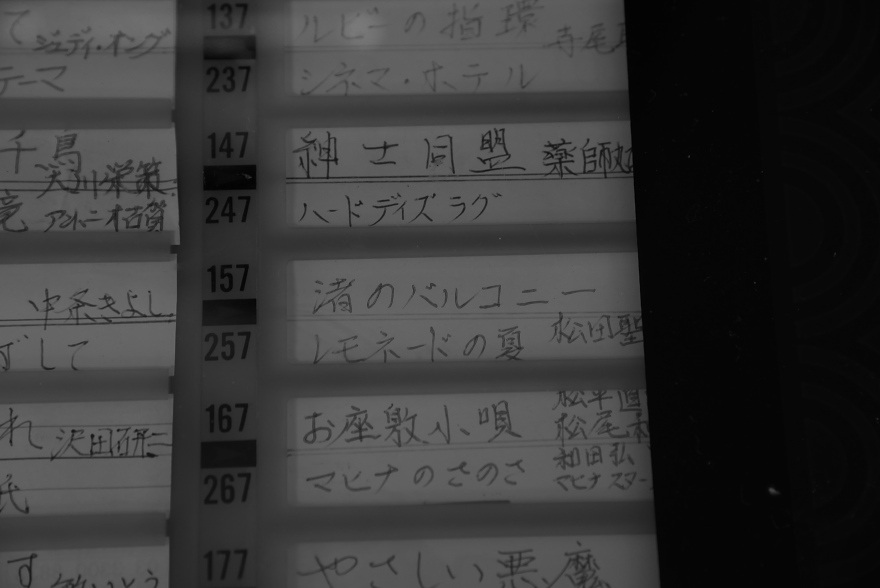 て ジュディ・オング
テーマ
千鳥
天川栄策
竜 アントニオ古賀
中条きよし
ずして
れ 沢田研二
氏
す
137 ルビーの指環 寺尾
237 シネマ・ホテル
147 紳士同盟 薬師
247 ハードデイズラグ
157 渚のバルコニー
257 レモネードの夏 松田聖
167 お座敷小唄 松平直
松尾和
267 マヒナのさのさ 和田弘
マヒナスター
177 やさしい悪魔